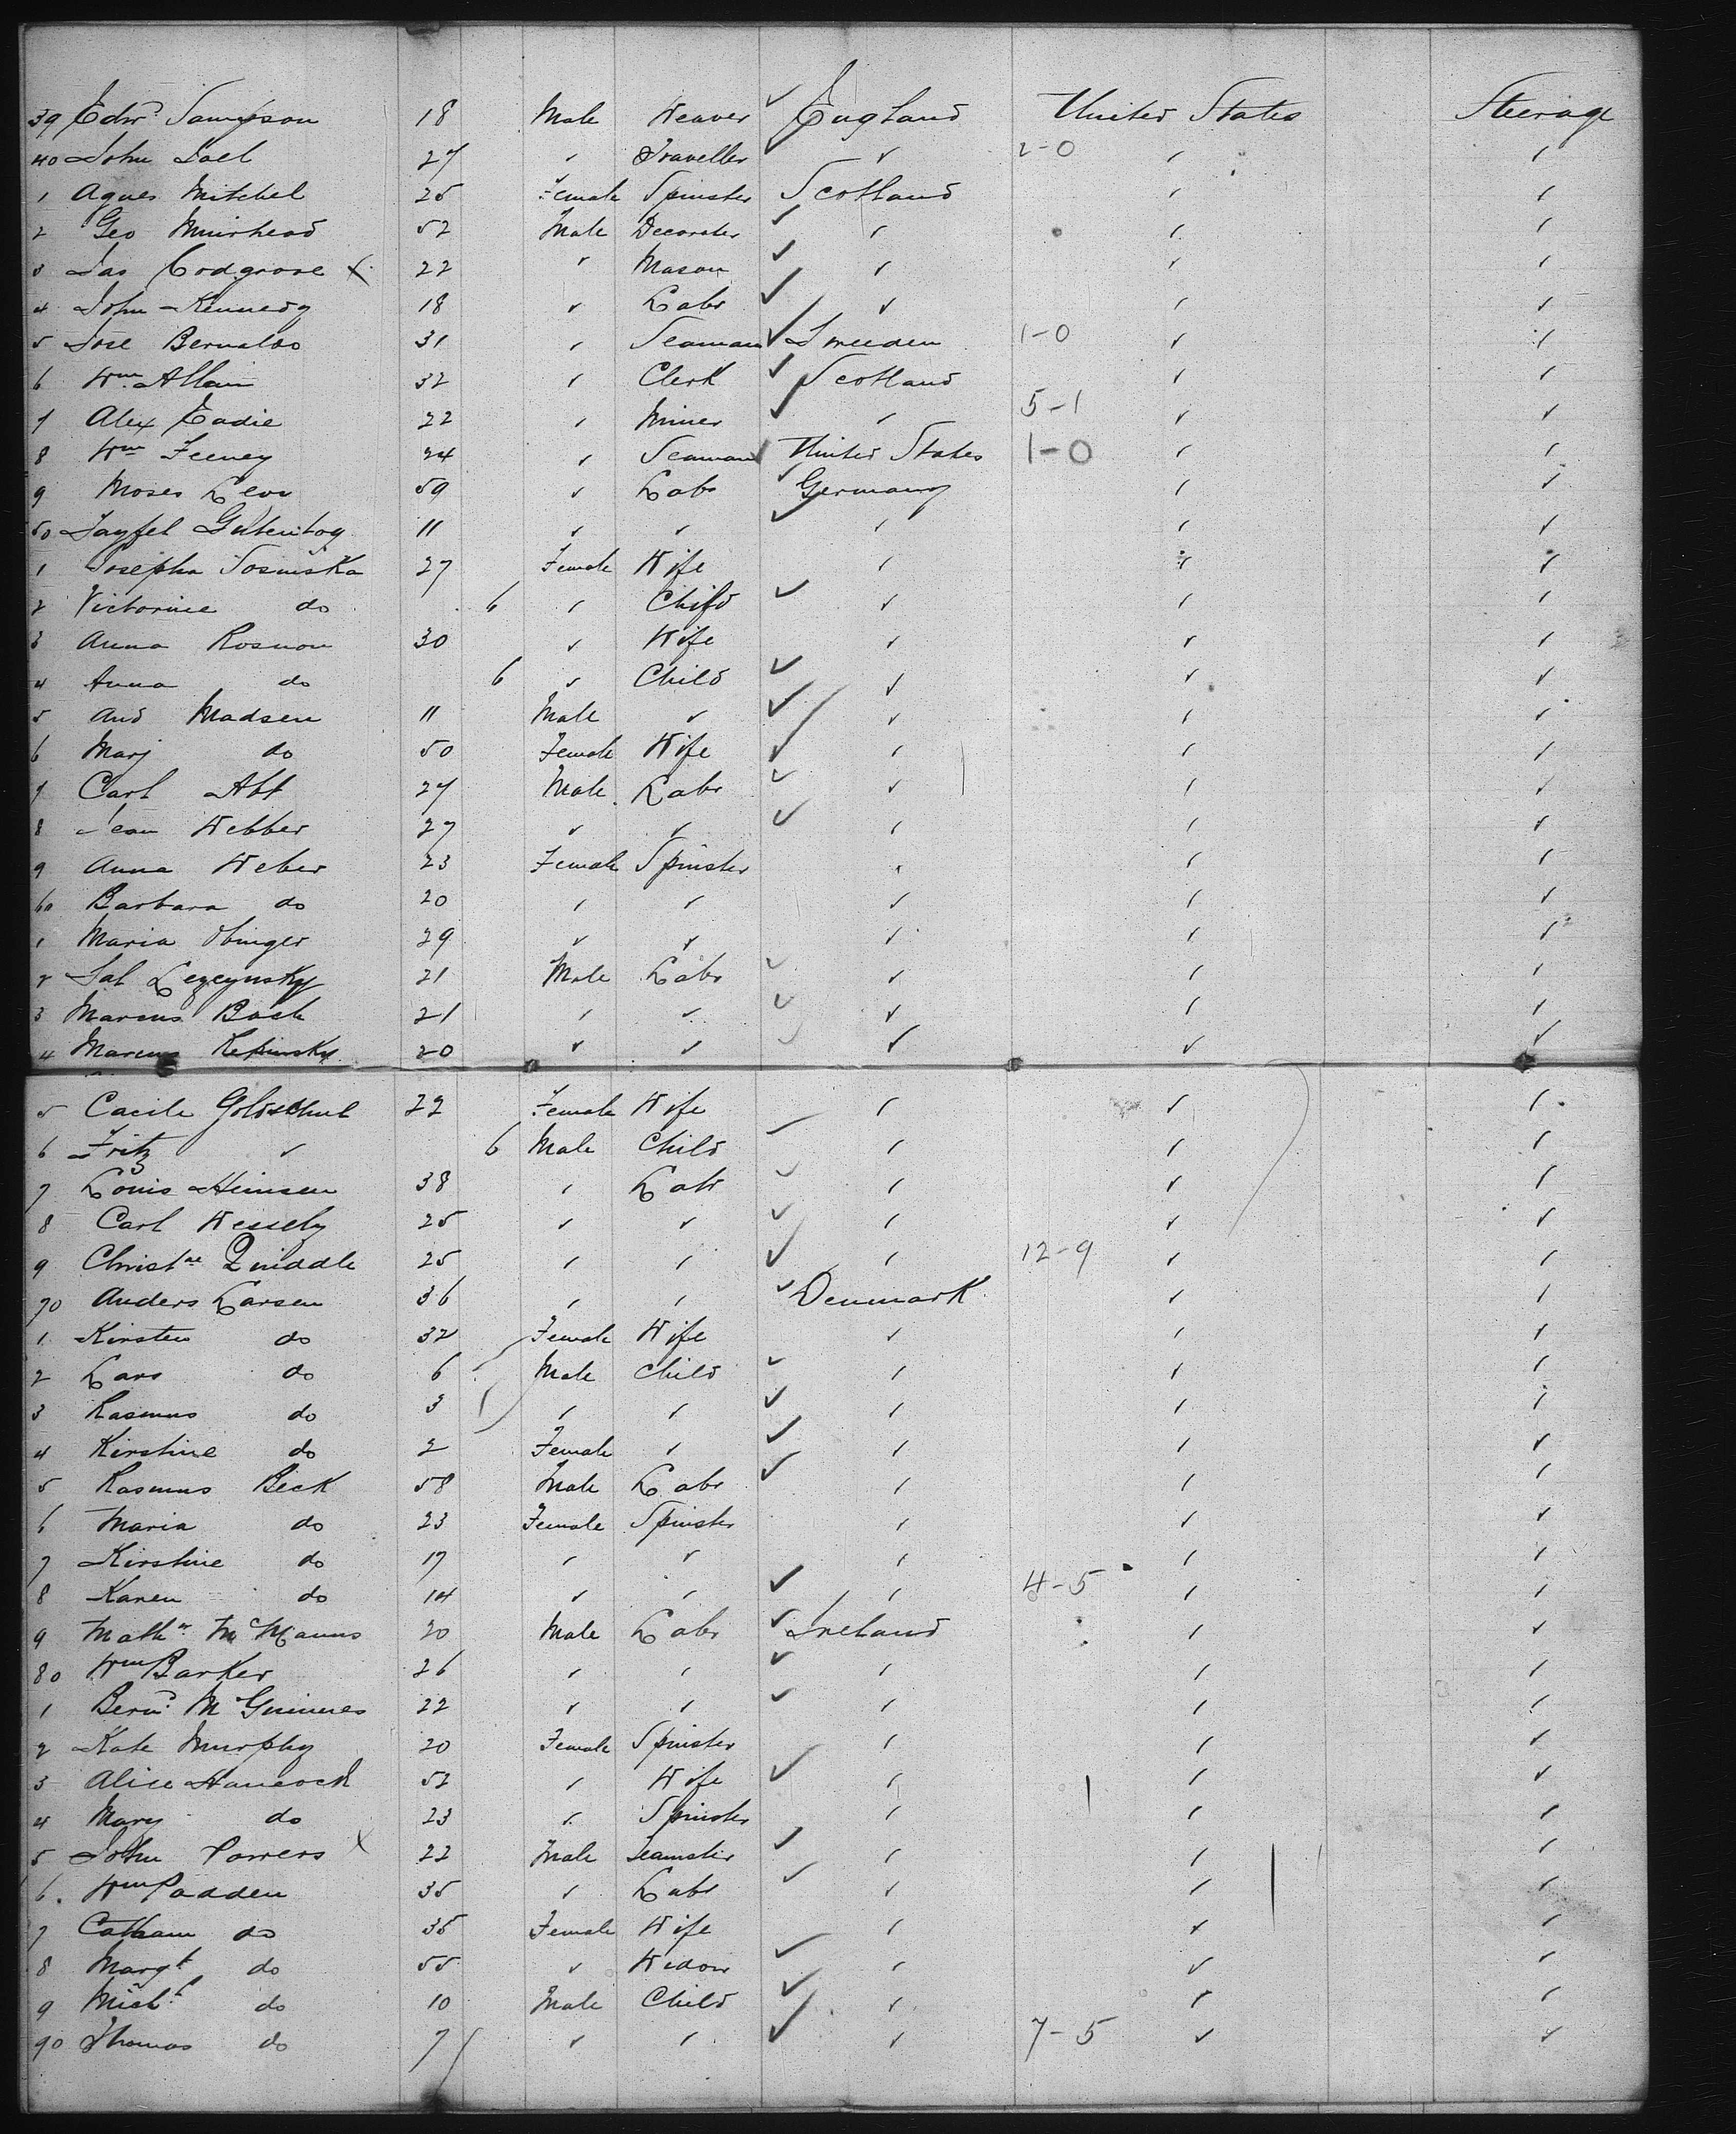 39 Edwd Sampson 18 Male Weaver England United States Steerage
40 John Lael 27 " Traveller " 2-0 " "
1 Agnes Mitchel 25 Female Spinster Scotland " "
2 Geo Muirhead 52 Male Decorater " " "
3 Jas Codgrove x 22 " Mason " " "
4 John Kennedy 18 " Labr " " "
5 Jose Bernaldo 31 " Seaman Sweeden 1-0 " "
6 Wm Allan 32 " Clerk Scotland " "
7 Alex Eadie 22 " Miner " 5-1 " "
8 Wm Feeney 24 " Seaman United States 1-0 " "
9 Moses Levy 59 " Labr Germany " "
50 Tayfel Gutentog 11 " " " " "
1 Josepha Sosniska 27 Female Wife " " "
2 Victorine do 6 " Child " " "
3 Anna Rosnow 30 " Wife " " "
4 Anna do 6 " Child " " "
5 And Madsen 11 Male " " " "
6 Marj do 50 Female Wife " " "
7 Carl Abt 27 Male Labr " " "
8 Jean Webber 27 " " " " "
9 Anna Weber 23 Female Spinster " " "
60 Barbara do 20 " " " " "
1 Maria Obinger 29 " " " " "
2 Sal Lezcynsky 21 Male Labr " " "
3 Marcus Back 21 " " " " "
4 Marcus Kepinsky 20 " " " " "
5 Cacile Goldschul 22 Female Wife " " "
6 Fritz " 6 Male Child " " "
7 Louis Heinsen 38 " Labr " " "
8 Carl Wessely 25 " " " " "
9 Christne Quiddle 25 " " " 12-9 " "
70 Anders Larsen 36 " " Denmark " "
1 Kirsten do 32 Female Wife " " "
2 Lars do 6 Male Child " " "
3 Rasmus do 3 " " " " "
4 Kirstine do 2 Female " " " "
5 Rasmus Beck 58 Male Labr " " "
6 Maria do 23 Female Spinster " " "
7 Kirstine do 17 " " " " "
8 Karen do 14 " " " 4-5 " "
9 Mathw McManus 20 Male Labr Ireland " "
80 Wm Barker 26 " " " " "
1 Bernd McGuinnes 22 " " " " "
2 Kate Murphy 20 Female Spinster " " "
3 Alice Hancock 52 " Wife " " "
4 Mary do 23 " Spinster " " "
5 John Powers x 22 Male Teamster " " "
6 Wm Padden 35 " Labr " " "
7 Catham do 35 Female Wife " " "
8 Margt do 55 " Widow " " "
9 Michl do 10 Male Child " " "
90 Thomas do 7 " " " 7-5 " "